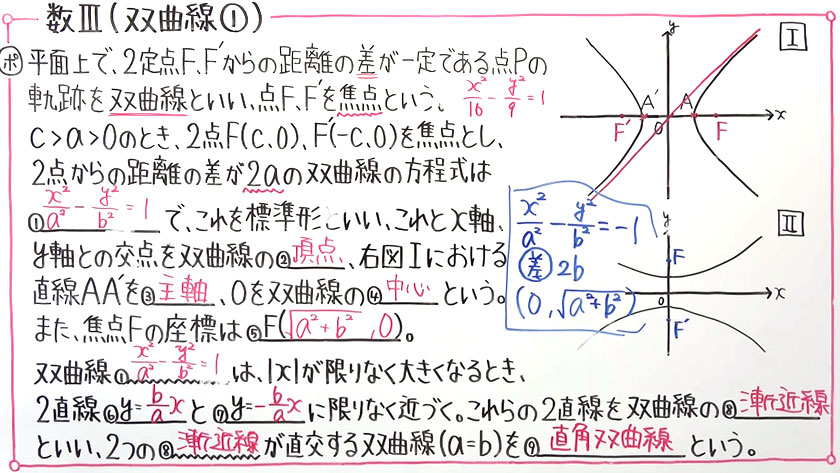 数Ⅲ(双曲線①)
ポ 平面上で、2定点F、F'からの距離の差が一定である点Pの
軌跡を双曲線といい、点F、F'を焦点という。 x²/16 - y²/9 = 1
c>a>0のとき、2点F(c,0)、F'(-c,0)を焦点とし、
2点からの距離の差が2aの双曲線の方程式は
① x²/a² - y²/b² = 1 で、これを標準形といい、これとx軸、
y軸との交点を双曲線の② 頂点 、右図Ⅰにおける
直線AA'を③ 主軸 、Oを双曲線の④ 中心 という。
また、焦点Fの座標は⑤ F(√a²+b² ,0) 。
双曲線① x²/a² - y²/b² = 1 は、|x|が限りなく大きくなるとき、
2直線⑥ y=b/a x と⑦ y=-b/a x に限りなく近づく。これらの2直線を双曲線の⑧ 漸近線
といい、2つの⑧ 漸近線 が直交する双曲線(a=b)を⑨ 直角双曲線 という。
Ⅰ
y
A' A
F' O F x
x²/a² - y²/b² = -1
差 2b
(0,√a²+b²)
Ⅱ
y
F
O x
F'